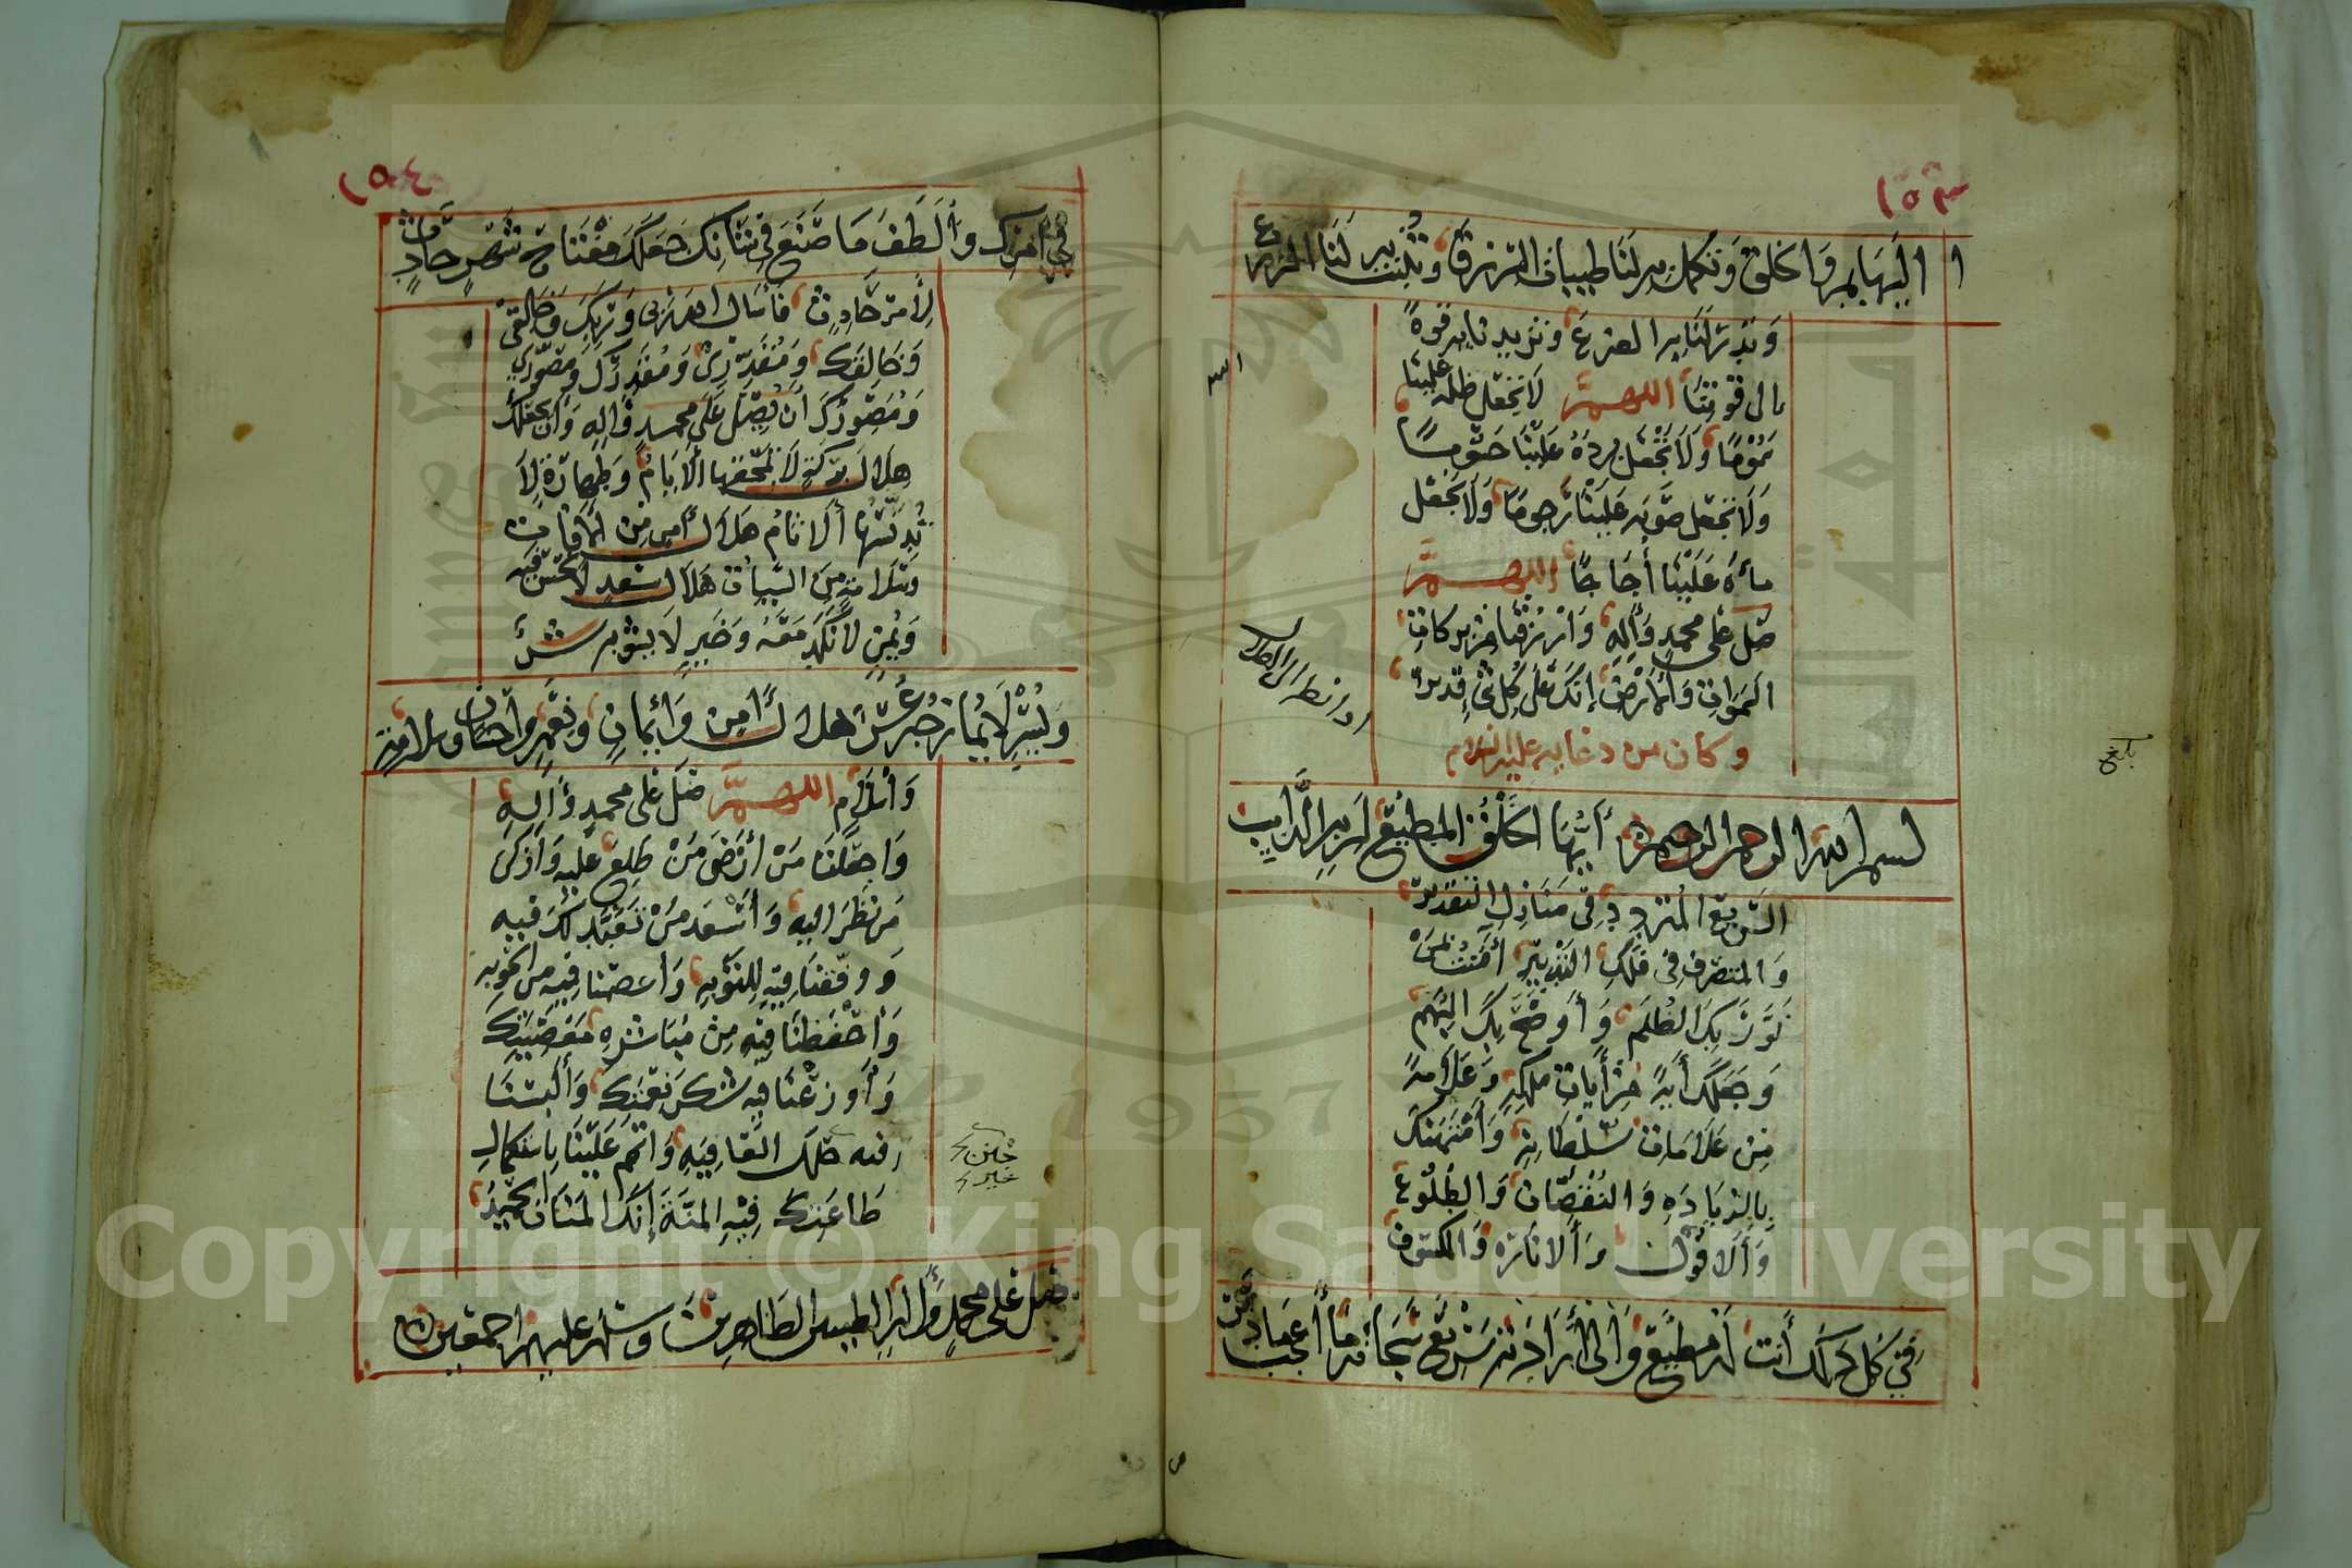 ١٥٣
البهايم والخلق وتكمل به لنا طيبات الرزق وتنبت به لنا الزرع
وتدر لنا به الضرع وتزيدنا به قوة
الى قوتنا اللهم لا تجعل ظله علينا
سموما ولا تجعل برده علينا حسوما
ولا تجعل صوبه علينا رجوما ولا تجعل
ماءه علينا أجاجا اللهم
صل على محمد وآله وارزقنا من بركات
السموات والأرض إنك على كل شئ قدير
وكان من دعايه عليه السلام
اذا نظر الى الهلال
بسم الله الرحمن الرحيم أيها الخلق المطيع لربه الدايب
السريع المتردد في منازل التقدير
والمتصرف في فلك التدبير آمنت بمن
نور بك الظلم وأوضح بك البهم
وجعلك آية من آيات ملكه وعلامة
من علامات سلطانه وامتهنك
بالزيادة والنقصان والطلوع
والافول والانارة والكسوف
في كل ذلك أنت له مطيع والى ارادته سريع سبحانه ما أعجب ما دبر
بلغ
١٥٤
في أمرك وألطف ما صنع في شأنك جعلك مفتاح شهر حادث
لأمر حادث فأسأل الله ربي وربك وخالقي
وخالقك ومقدري ومقدرك ومصوري
ومصورك أن يصلي على محمد وآله وأن يجعلك
هلال بركة لا تمحقها الأيام وطهارة لا
تدنسها الآثام هلال أمن من الآفات
وسلامة من السيئات هلال سعد لا نحس فيه
ويمن لا نكد معه وخير لا يشوبه شر
ويسر لا يمازجه عسر هلال أمن وايمان ونعمة واحسان وسلامة
واسلام اللهم صل على محمد وآله
واجعلنا من أرضى من طلع عليه وأزكى
من نظر اليه وأسعد من تعبد لك فيه
ووفقنا فيه للتوبة واعصمنا فيه من الحوبة
واحفظنا فيه من مباشرة معصيتك
وأوزعنا فيه شكر نعمتك وألبسنا
فيه حلل العافية واتمم علينا باستكمال
طاعتك فيه المنة إنك المنان الحميد
صل على محمد وآله الطيبين الطاهرين وسلم عليهم اجمعين
Copyright © King Saud University
1957